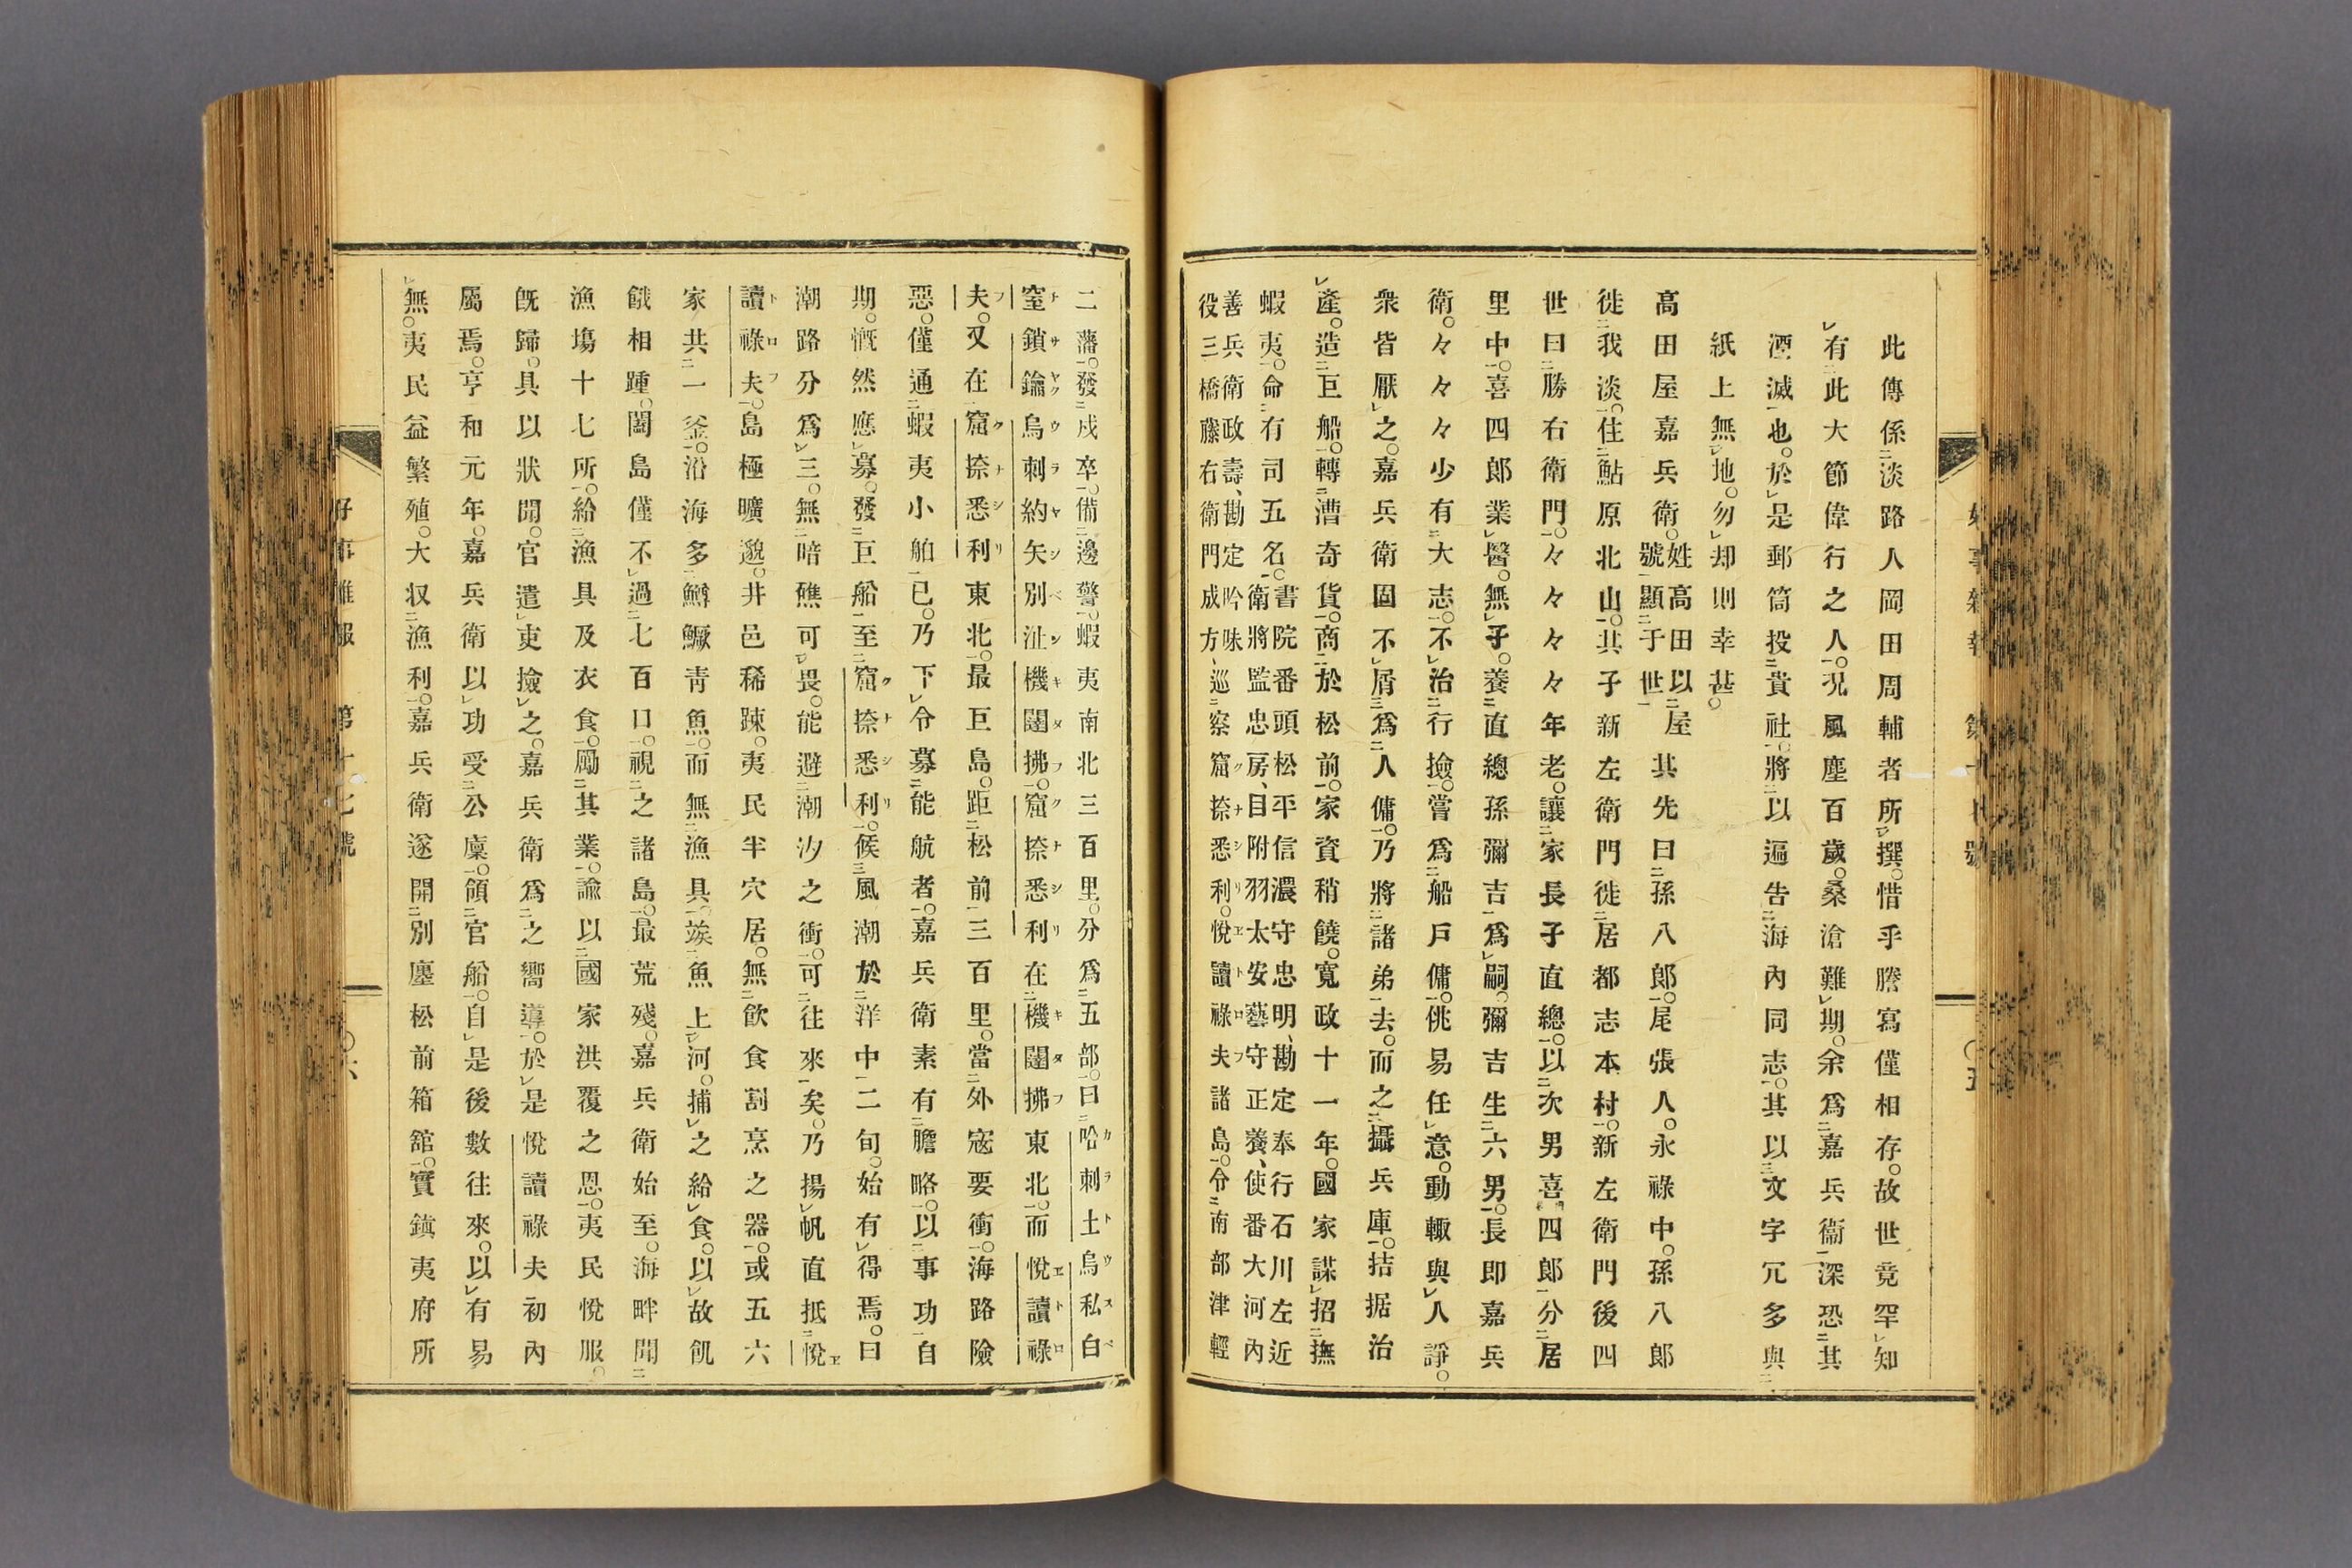 此傳係淡路人岡田周輔者所撰惜乎謄寫僅相存故世竟罕知
有此大節偉行之人況風塵百歲桑滄難期余爲嘉兵衞深恐其
湮滅也於是郵筒投貴社將以遍告海內同志其以文字冗多與
紙上無地勿却則幸甚
高田屋嘉兵衞姓高田以屋號顯于世其先曰孫八郞尾張人永祿中孫八郞
徙我淡住鮎原北山其子新左衞門徙居都志本村新左衞門後四
世曰勝右衞門々々々々年老讓家長子直總以次男喜四郞分居
里中喜四郞業醫無子養直總孫彌吉爲嗣彌吉生六男長即嘉兵
衞々々々少有大志不治行撿嘗爲船戶傭佻易任意動輙與人諍
衆皆厭之嘉兵衞固不屑爲人傭乃將諸弟去而之攝兵庫拮据治
產造巨船轉漕奇貨商於松前家資稍饒寬政十一年國家謀招撫
蝦夷命有司五名書院番頭松平信濃守忠明、勘定奉行石川左近
衞將監忠房、目附羽太安藝守正養、使番大河內
善兵衞政壽、勘定吟味
役三橋藤右衞門成方、巡察窟捺悉利悅讀祿夫諸島令南部津輕
好事雜報　第十七號　〇五
二藩發戍卒備邊警蝦夷南北三百里分爲五部曰哈刺土烏私白
窒鎖鑰烏刺約矢別沚機闥拂窟捺悉利在機闥拂東北而悅讀祿
夫又在窟捺悉利東北最巨島距松前三百里當外寇要衝海路險
惡僅通蝦夷小舶已乃下令募能航者嘉兵衞素有膽略以事功自
期慨然應募發巨船至窟捺悉利候風潮於洋中二旬始有得焉曰
潮路分爲三無暗礁可畏能避潮汐之衝可往來矣乃揚帆直抵悅
讀祿夫島極曠邈井邑稀踈夷民半穴居無飮食割烹之器或五六
家共一釜沿海多鱒鱖靑魚而無漁具竢魚上河捕之給食以故飢
餓相踵闔島僅不過七百口視之諸島最荒殘嘉兵衞始至海畔開
漁塲十七所給漁具及衣食勵其業諭以國家洪覆之恩夷民悅服
旣歸具以狀聞官遣吏撿之嘉兵衞爲之嚮導於是悅讀祿夫初內
屬焉亨和元年嘉兵衞以功受公廩領官船自是後數往來以有易
無夷民益繁殖大収漁利嘉兵衞遂開別廛松前箱舘實鎭夷府所
好事雜報　第十七號　〇六